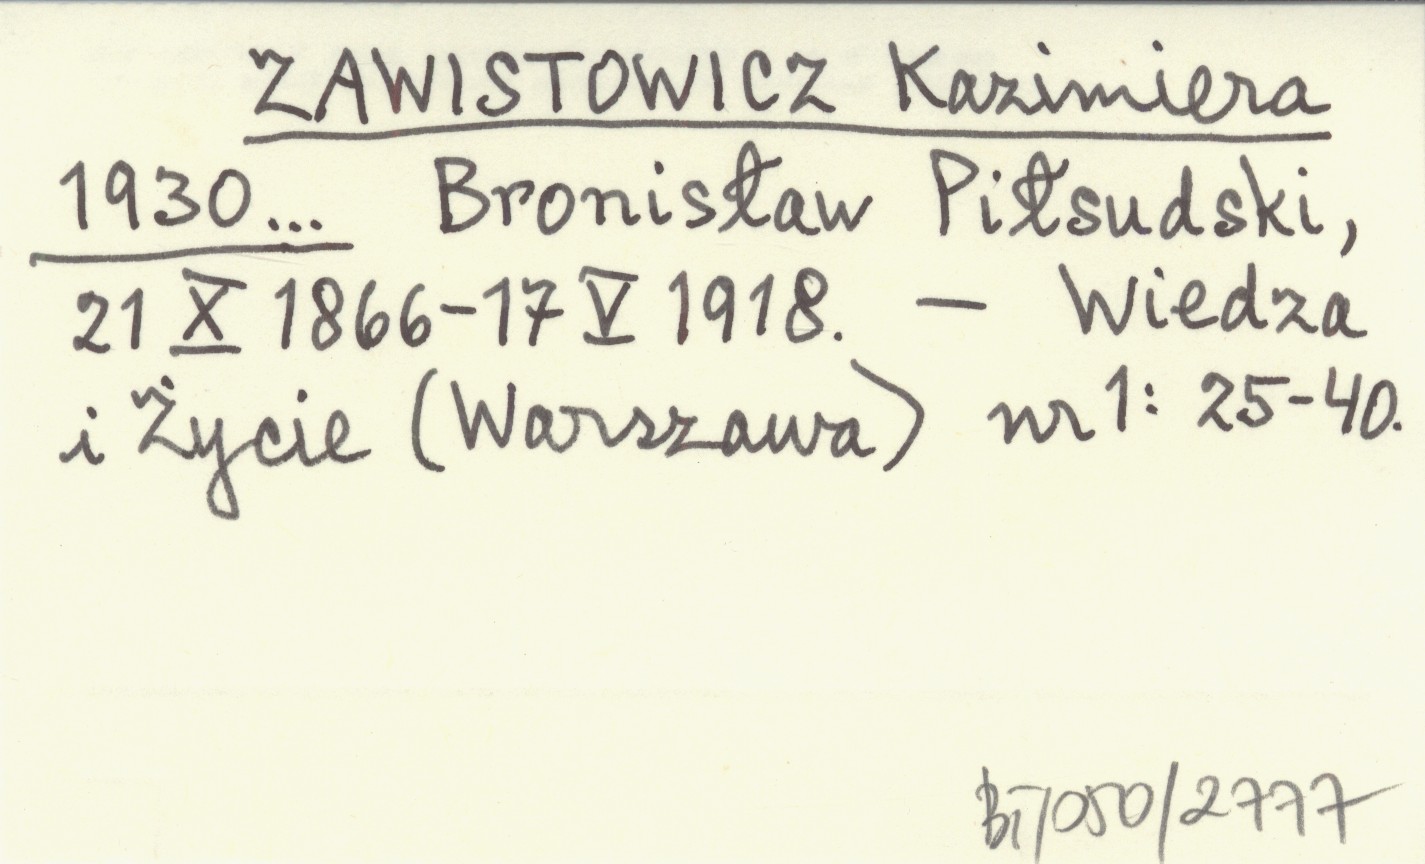 ZAWISTOWICZ Kazimiera
1930... Bronisław Piłsudski,
21 X 1866-17 V 1918. — Wiedza
i Życie (Warszawa) nr 1: 25-40.
BI/050/2777